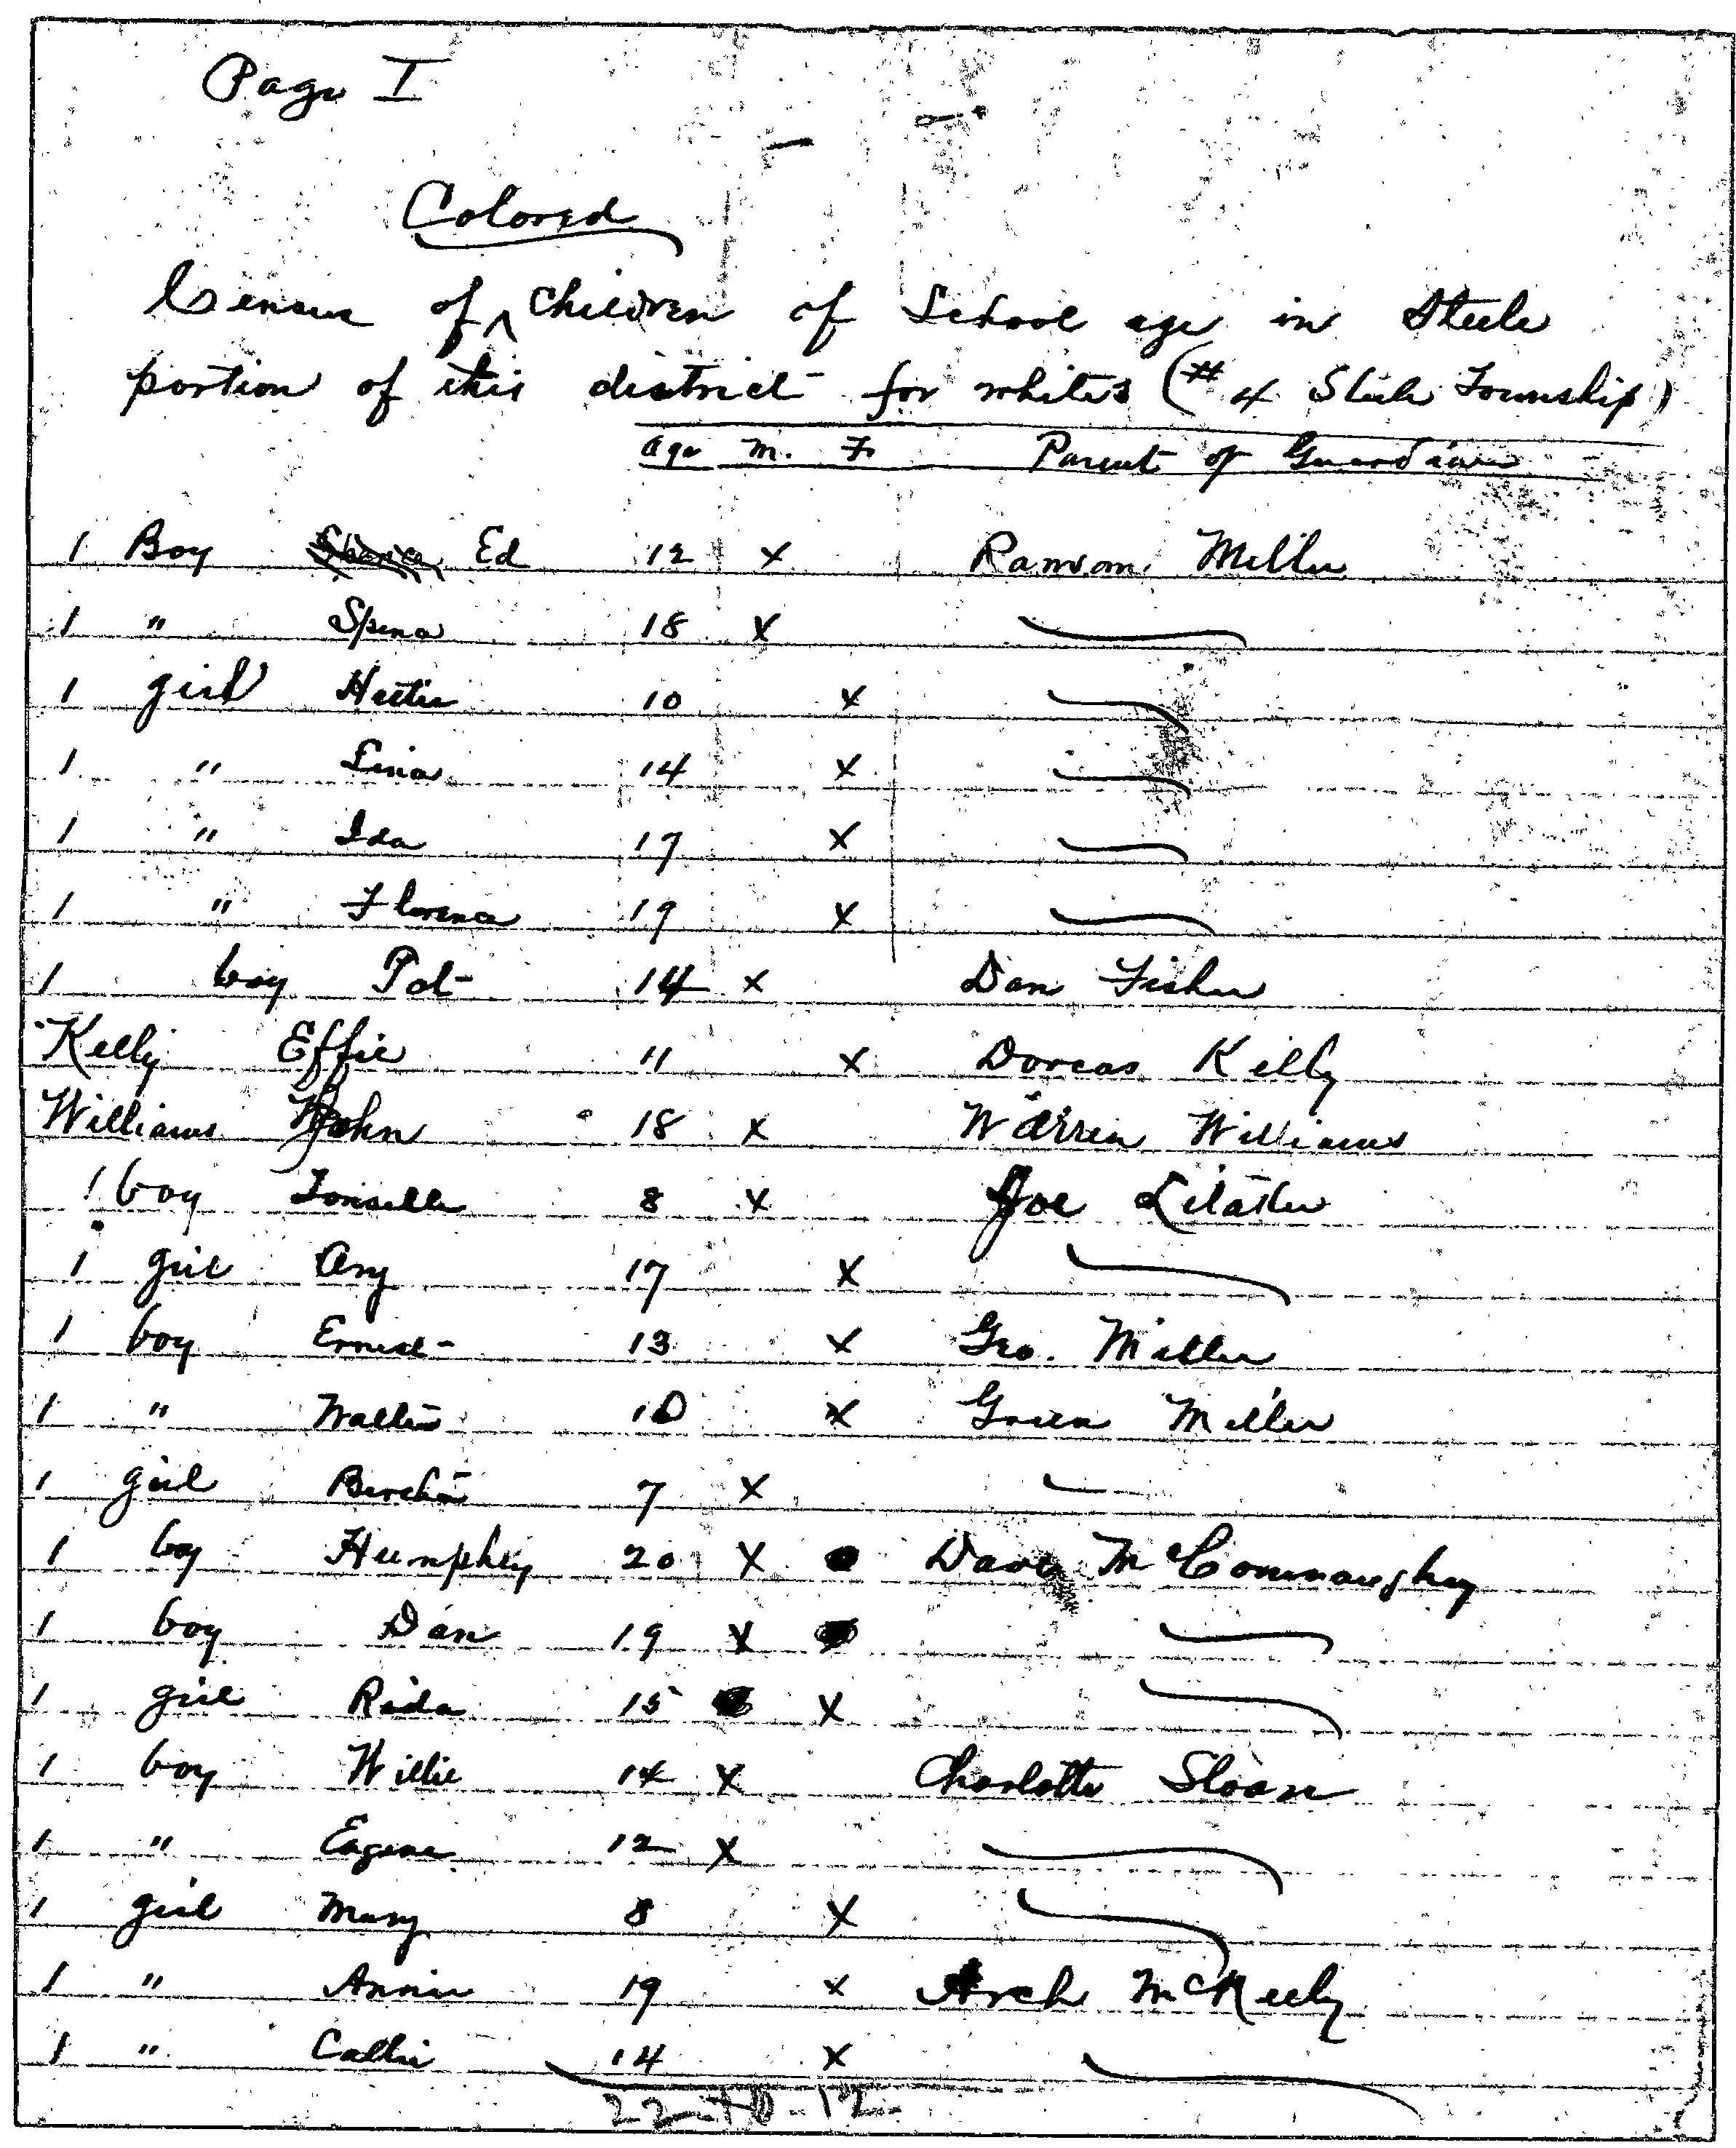 Page I
Colored
Census of ^ Children of School age in Steele
portion of this district for whites (# 4 Steele Township)
Age M. F. Parent of Guardian
1 Boy Ed 12 x Ransom Miller
1 " Spena 18 x
1 girl Hettie 10 x
1 " Lina 14 x
1 " Ida 17 x
1 " Florence 19 x
1 boy Pat 14 x Dan Fisher
Kelly Effie 11 x Dorcas Kelly
Williams John 18 x Warren Williams
1 boy 8 x Joe
1 girl Ary 17 x
1 boy Ernest 13 x Geo. Miller
1 " Walter 10 x Green Miller
1 girl Bertha 7 x
1 boy Humphey 20 x Dave McConnaughey
1 boy Dan 19 x
1 girl Rida 15 x
1 boy Willie 14 x Charlotte Sloan
1 " Eugene 12 x
1 girl Mary 8 x
1 " Annie 19 x Arch McNeely
1 " Callie 14 x
22-10-12